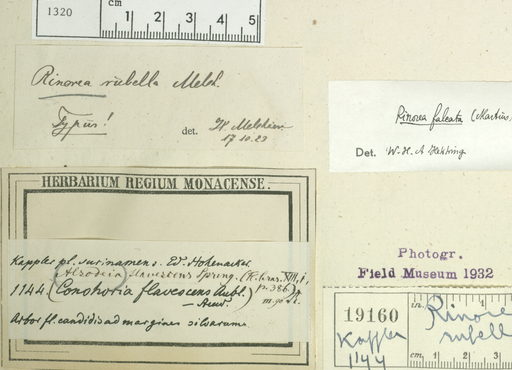 1320
cm 1 2 3 4 5
Rinorea rubella Melch.
Typus!
det. H. Melchior
17.10.23
Rinorea falcata (Martius
Det. W.H.A Hekking
HERBARIUM REGIUM MONACENSE.
Kappler pl. surinamens. Ed. Hohenacker
Alsodeia flavescens Spreng. 
1144. (Conohoria flavescens Aubl.) p. 386
Arbor fl. candidis ad margines silvarum.
Photogr.
Field Museum 1932
19160
Kappler
1144
in.
Rinore
rubell
cm 1 2 3 4